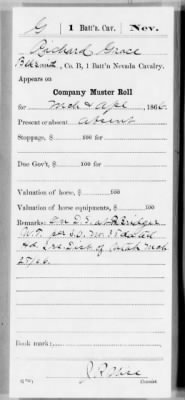 G | 1 Batt'n. Cav. | Nev.
Richard Grace
Co. B, 1 Batt'n Nevada Cavalry.
Appears on
Company Muster Roll
for Mch & Apl, 1866.
Present or absent Absent
Stoppage, $ 100 for
Due Gov't, $ 100 for
Valuation of horse, $ 100
Valuation of horse equipments, $ 100
Remarks: On D.S. at Bridger
per S.O. No. dated
Hd. Qrs. Dist of Utah Mch
27/66.
Book mark:
Copyist.